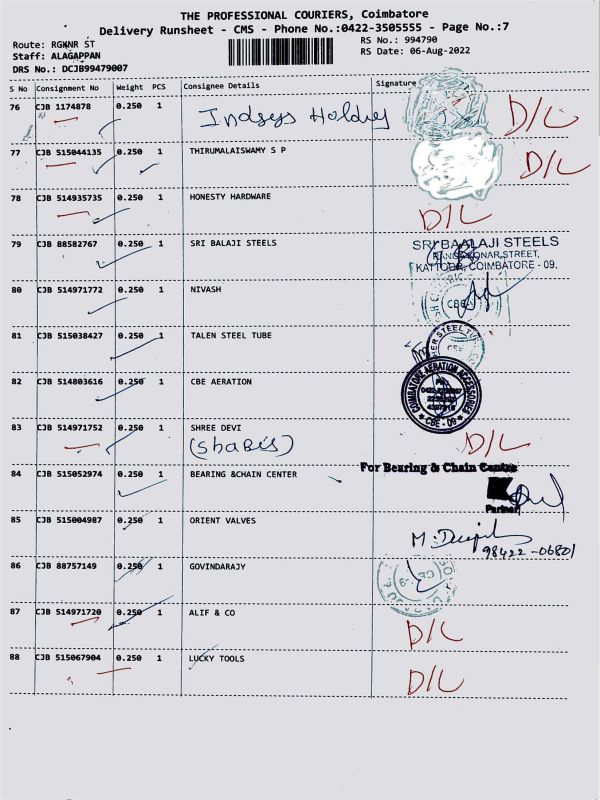 THE PROFESSIONAL COURIERS, Coimbatore
Delivery Runsheet - CMS - Phone No.:0422-3505555 - Page No.:7
Route: RGKNR ST
RS No.: 994790
Staff: ALAGAPPAN
RS Date: 06-Aug-2022
DRS No.: DCJB99479007
S No Consignment No Weight PCS Consignee Details Signature
76 CJB 1174878 0.250 1 Indsys Holdings D/L
77 CJB 515044135 0.250 1 THIRUMALAISWAMY S P D/L
78 CJB 514935735 0.250 1 HONESTY HARDWARE D/L
79 CJB 88582767 0.250 1 SRI BALAJI STEELS
SRI BAALAJI STEELS
KATTOOR, COIMBATORE - 09.
80 CJB 514971772 0.250 1 NIVASH
81 CJB 515038427 0.250 1 TALEN STEEL TUBE
82 CJB 514803616 0.250 1 CBE AERATION
COIMBATORE AERATION ACCESSORIES
CBE - 09
83 CJB 514971752 0.250 1 SHREE DEVI D/L
(Shabis)
84 CJB 515052974 0.250 1 BEARING &CHAIN CENTER
For Bearing & Chain Centre
Partner
85 CJB 515004987 0.250 1 ORIENT VALVES
98422-06801
86 CJB 88757149 0.250 1 GOVINDARAJY
87 CJB 514971720 0.250 1 ALIF & CO D/L
88 CJB 515067904 0.250 1 LUCKY TOOLS D/L